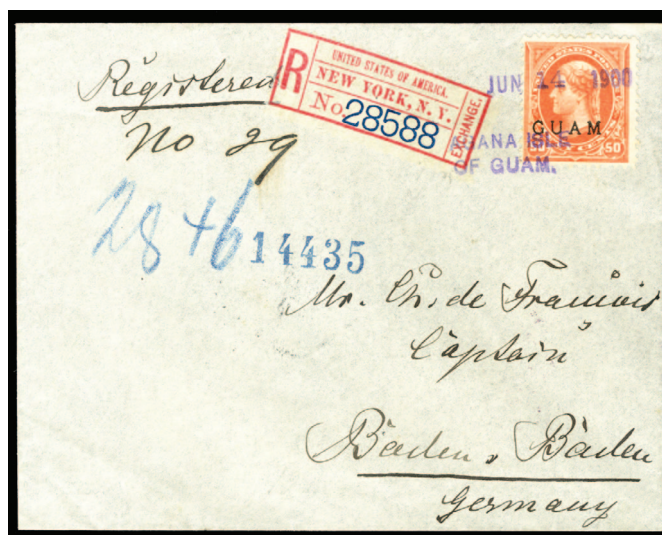 Registered
No 29
R
UNITED STATES OF AMERICA.
NEW YORK, N. Y.
No. 28588
EXCHANGE.
JUN 14 1900
GUAM
50
AGANA ISLE
OF GUAM.
28+6
14435
Mr. Ch. de François
Captain
Baden, Baden
Germany